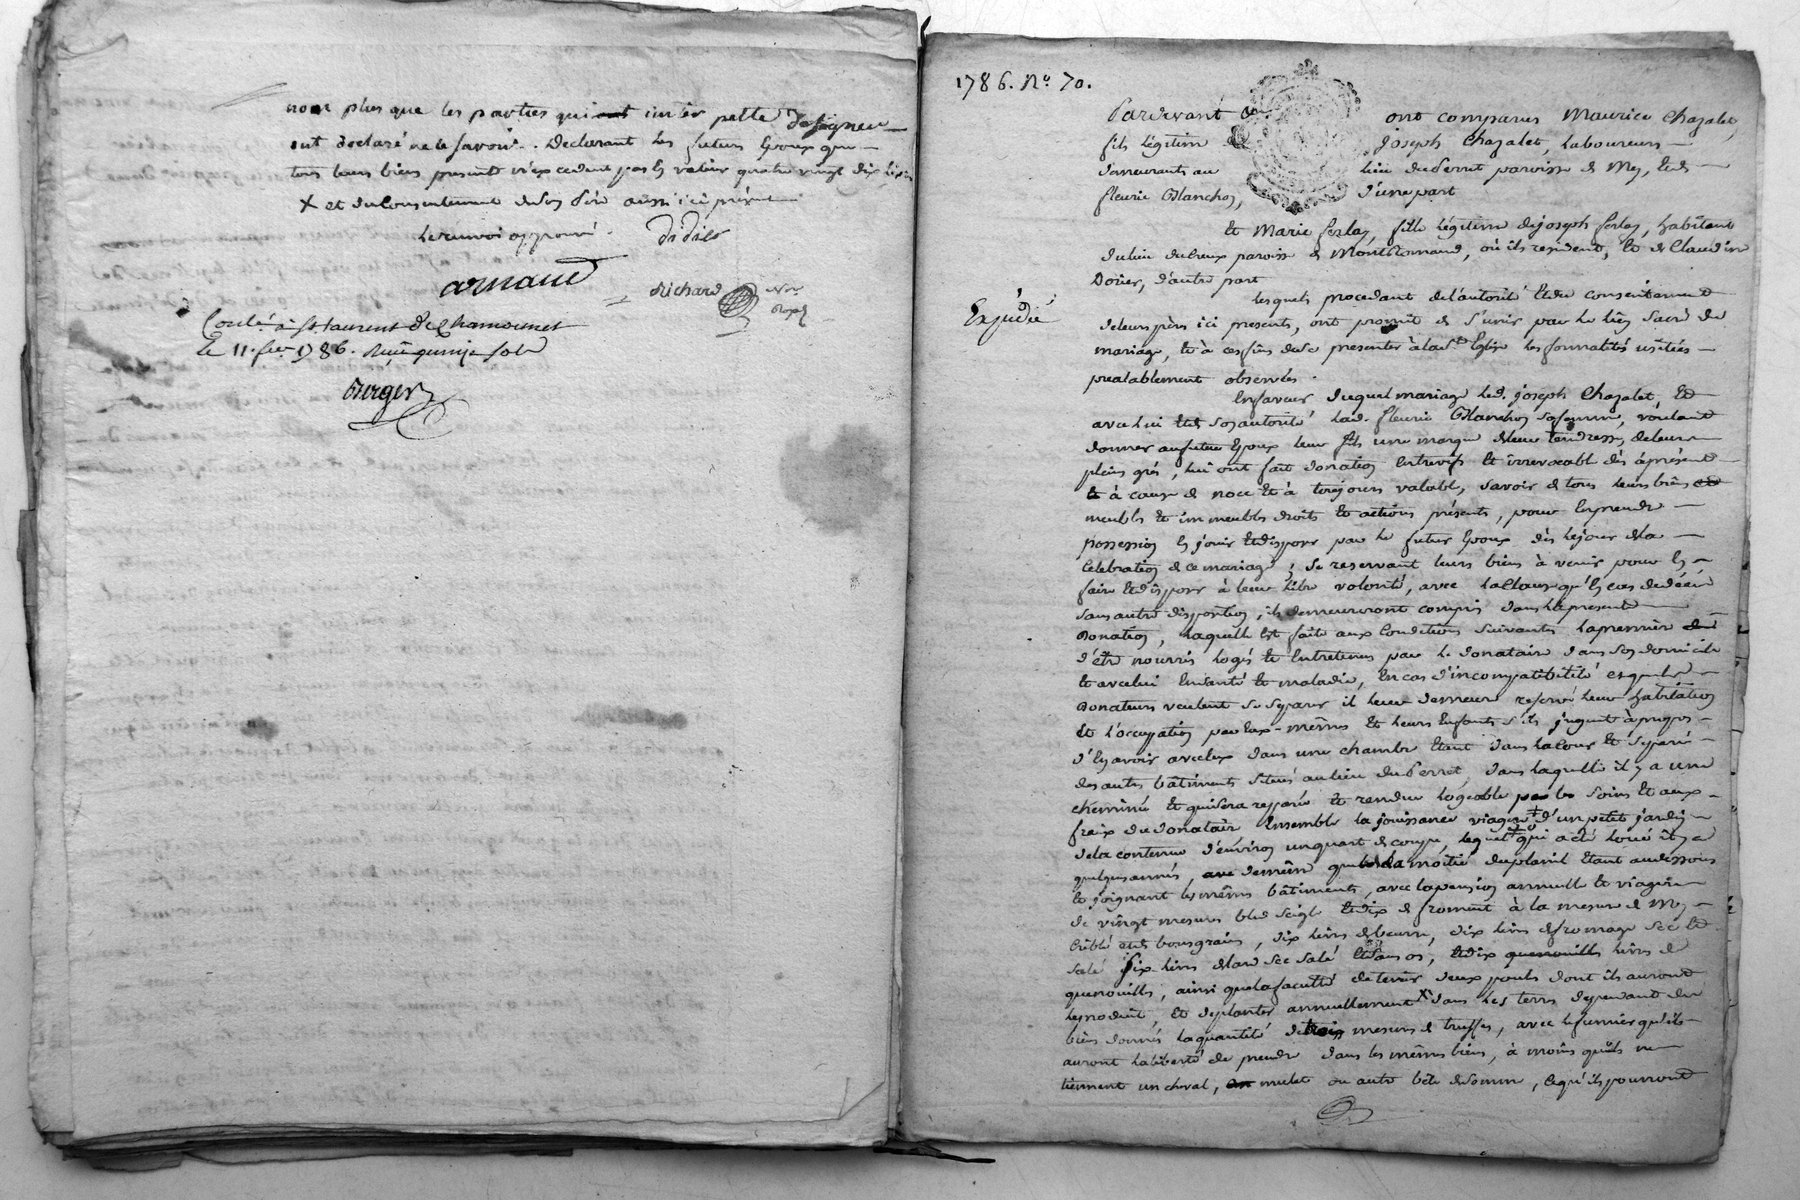 non plus que les parties qui ont interpellé de signer
ont declaré ne le savoir. Declarant les futurs Epoux que
tous leurs biens presents n'excedent pas la valeur quatre vingt dix livres
X et du consentement de son Père aussi ici présent
le renvoi approuvé.
Didier
armand
Richard Nre Royal
Conlé à St laurent de Chamousset
le 11. fer 1786. Reçu quinze sols
Berger
1786. No. 70.
Pardevant &a ont comparus Maurice Chazalet,
fils légitime de joseph Chazalet, laboureurs
demeurants au lieu du Perret paroisse de Mey, et de
fleurie Blanchon, d'une part
Et Marie ferlay, fille légitime de joseph ferlay, habitant
du lieu du Creux paroisse de Montromand, où ils resident, Et de Claudine
Dorier, d'autre part
Expédié
lesquels procedant de l'autorité et du consentement
de leurs pères ici presents, ont promit de s'unir par le lien sacré de
mariage, et à ces fins de se presenter à la Ste Eglise les formalités usitées
prealablement observées.
En faveur duquel mariage led. joseph Chazalet, Et
avec lui et de son autorité lad. fleurie Blanchon sa femme, voulant
donner au futur Epoux leur fils une marque de leur tendresse, de leur
plein gré, lui ont fait donation entrevifs et irrevocable dès à présent
et à cause de noce Et à toujours valable, savoir de tous leurs biens
meubles et immeubles droits et actions présents, pour en prendre
possession en jouir et disposer par le futur Epoux dès le jour de la
Celebration de ce mariage; se reservant leurs biens à venir pour en
faire et disposer à leur libre volonté, avec la Clause qu'en cas de décès
sans autre disposition, ils demeureront compris dans la presente
Donation, laquelle est faite aux Conditions suivantes la premiere
d'être nourris logés et entretenus par le donataire dans son domicile
et avec lui en santé et maladie, En cas d'incompatibilité et que les
Donateurs veulent se separer il leur demeure reservé leur habitation
et l'occupation par eux-mêmes et leurs Enfants s'ils jugent à propos
d'en avoir avec eux dans une chambre étant dans la Cour et separée
des autres bâtiments situés au lieu du Perret, dans laquelle il y a une
cheminée et qui sera reparée et rendue logeable par les soins et aux
fraix du donataire Ensemble la jouissance viagere d'un petit jardin
de la contenue d'environ un quart de coupe, lequel qui a été loué il y a
quelques années, de même que la moitié du plassil étant audessous
et joignant les mêmes bâtiments, avec la pension annuelle et viagere
de vingt mesures bled seigle et dix de froment à la mesure de Mey
criblé et de bons grains, dix livres de beurre, dix livres de fromage sec et
salé six livres de lard sec salé et sans os, et dix quenouilles livres de
quenouilles, ainsi que la faculté de tenir deux poules dont ils auront
le produit, et de planter annuellement X dans les terres dependant des
biens donnés la quantité de trois mesures de truffes, avec le fumier qu'ils
auront la liberté de prendre dans les mêmes biens, à moins qu'ils ne
tiennent un cheval, mulet ou autre bête de somme, ce qu'ils pourront